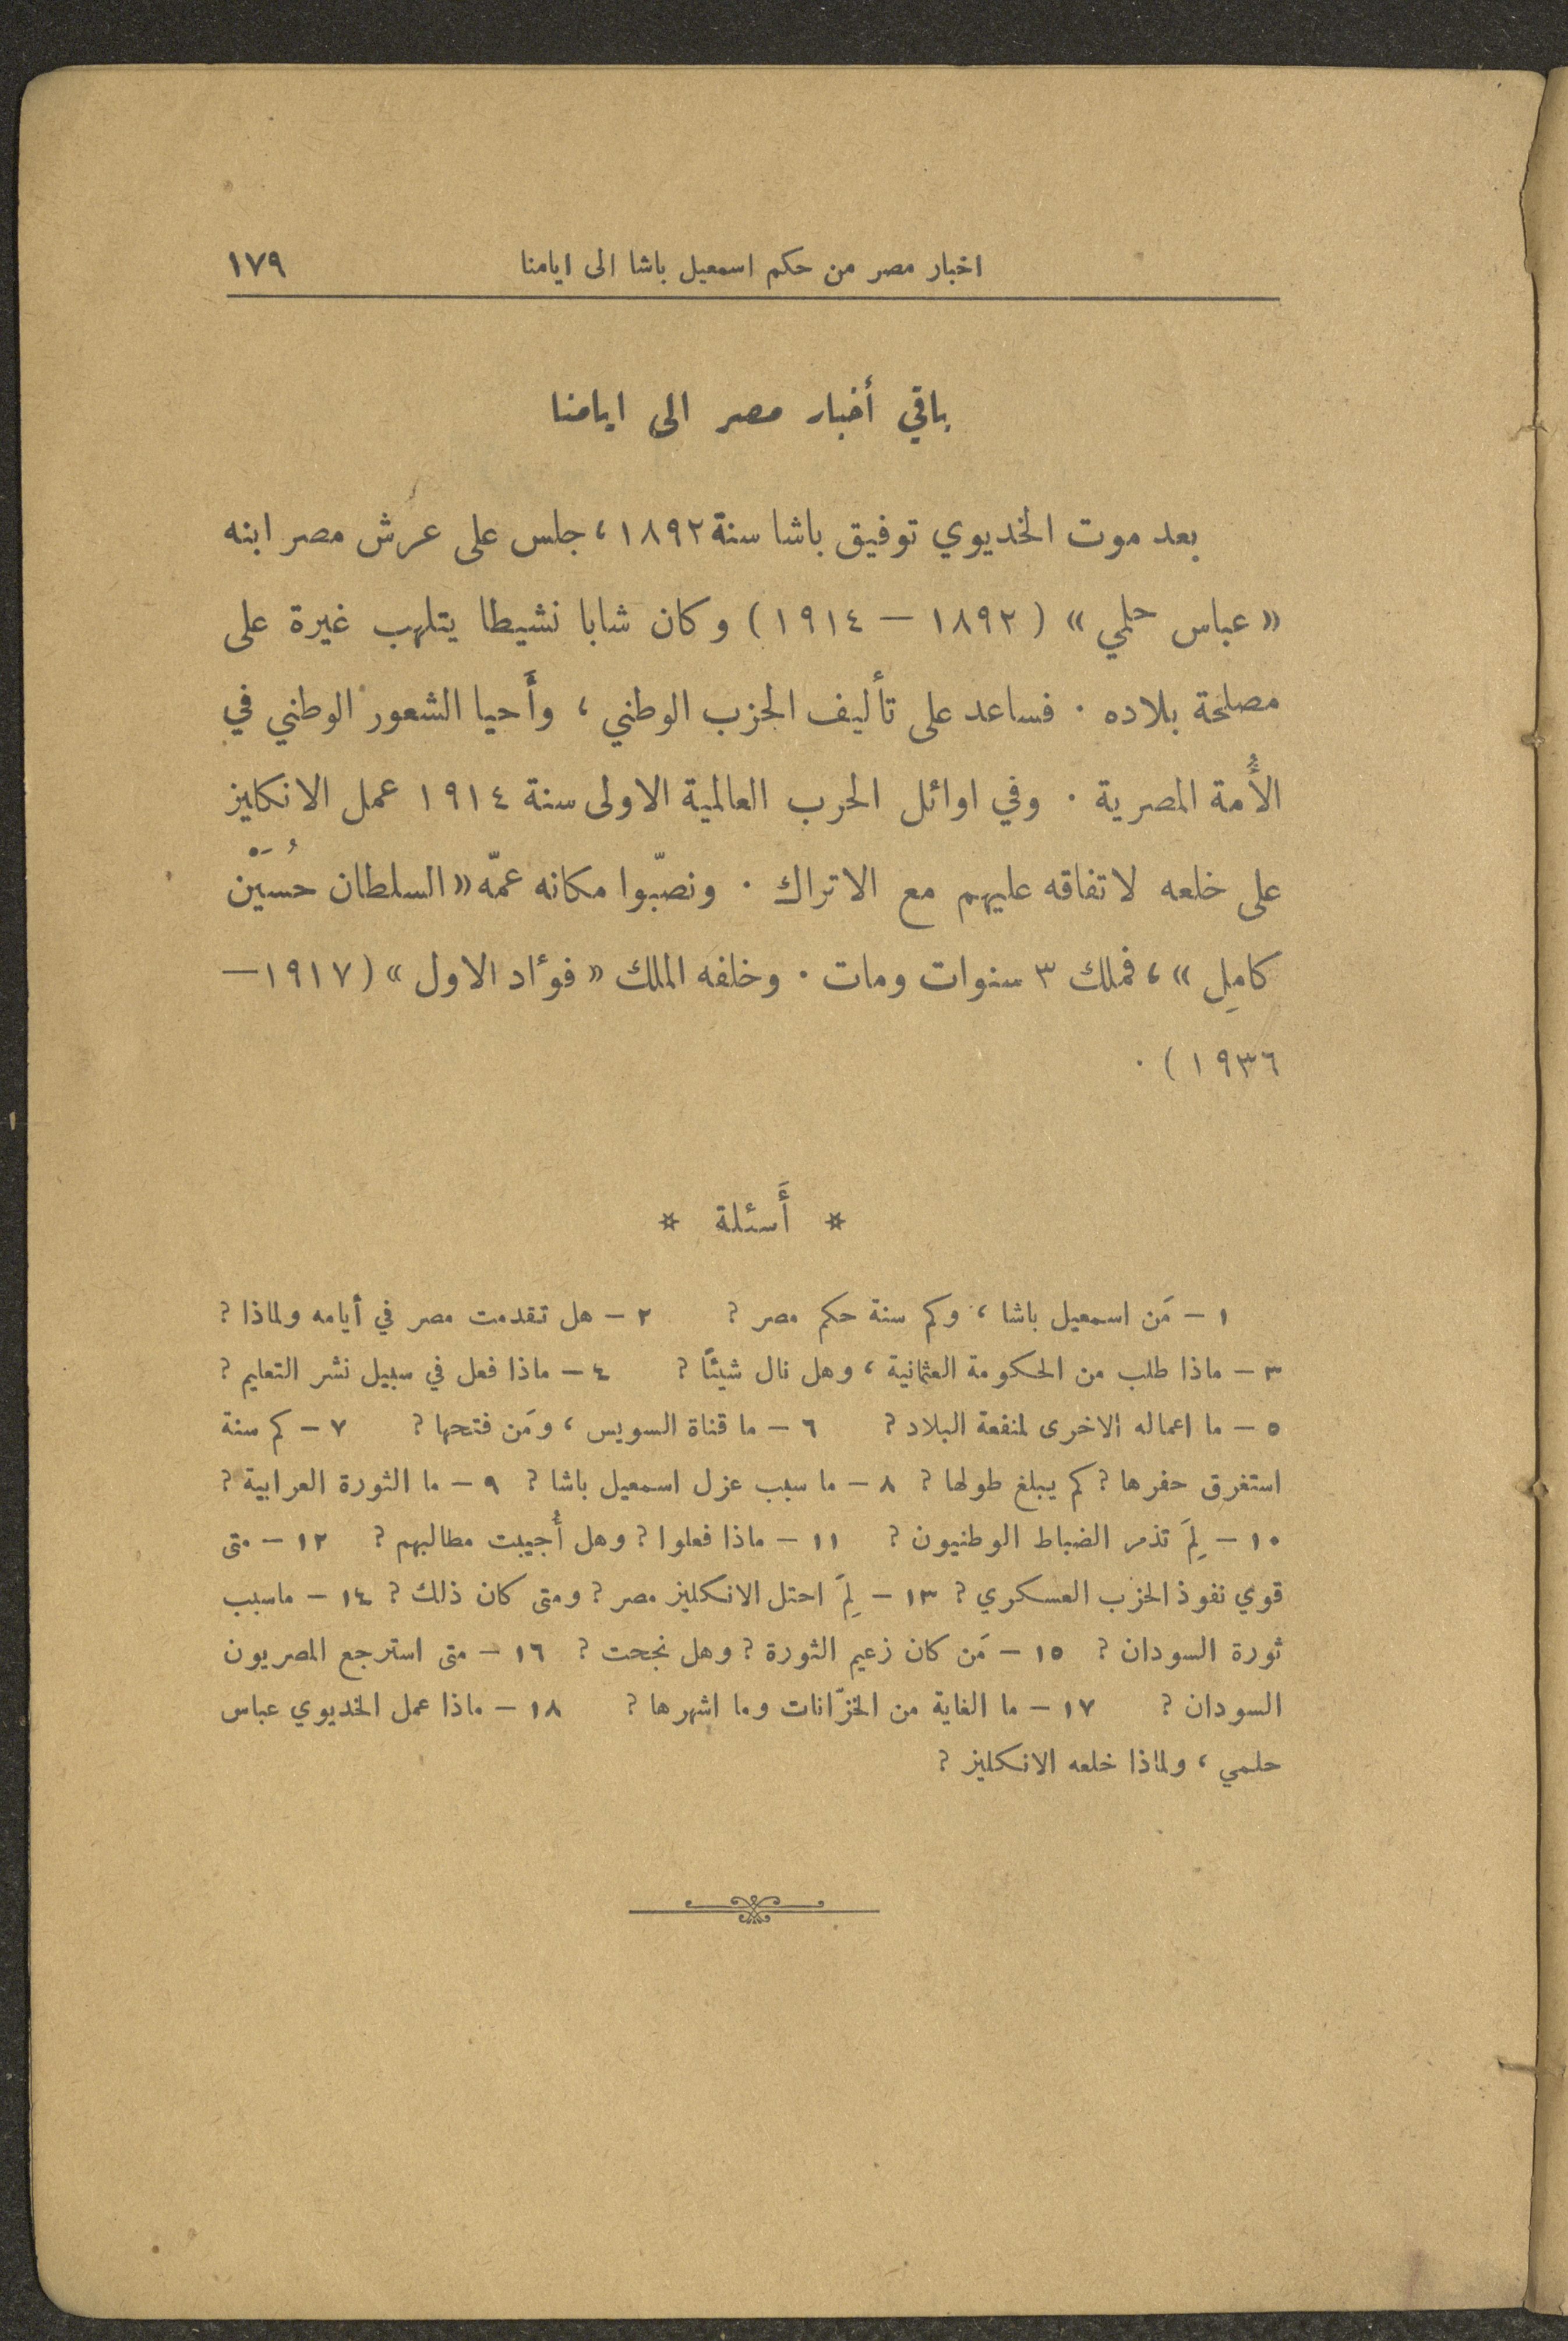 اخبار مصر من حكم اسمعيل باشا الى ايامنا ١٧٩
باقي أخبار مصر الى ايامنا
بعد موت الخديوي توفيق باشا سنة ١٨٩٢، جلس على عرش مصر ابنه
«عباس حلمي» (١٨٩٢ – ١٩١٤) وكان شابا نشيطا يتلهب غيرة على
مصلحة بلاده . فساعد على تأليف الحزب الوطني، وأَحيا الشعور الوطني في
الأُمة المصرية . وفي اوائل الحرب العالمية الاولى سنة ١٩١٤ عمل الانكليز
على خلعه لاتفاقه عليهم مع الاتراك . ونصّبوا مكانه عمّه «السلطان حُسَيْن
كامِل»، فملك ٣ سنوات ومات . وخلفه الملك «فؤاد الاول» (١٩١٧–
١٩٣٦) .
* أَسئلة *
١ – مَن اسمعيل باشا، وكم سنة حكم مصر ? ٢ – هل تقدمت مصر في أيامه ولماذا ?
٣ – ماذا طلب من الحكومة العثمانية، وهل نال شيئًا ? ٤ – ماذا فعل في سبيل نشر التعليم ?
٥ – ما اعماله الاخرى لمنفعة البلاد ? ٦ – ما قناة السويس، ومَن فتحها ? ٧ – كم سنة
استغرق حفرها ? كم يبلغ طولها ? ٨ – ما سبب عزل اسمعيل باشا ? ٩ – ما الثورة العرابية ?
١٠ – لِمَ تذمر الضباط الوطنيون ? ١١ – ماذا فعلوا ? وهل أُجيبت مطالبهم ? ١٢ – متى
قوي نفوذ الحزب العسكري ? ١٣ – لِمَ احتل الانكليز مصر ? ومتى كان ذلك ? ١٤ – ماسبب
ثورة السودان ? ١٥ – مَن كان زعيم الثورة ? وهل نجحت ? ١٦ – متى استرجع المصريون
السودان ? ١٧ – ما الغاية من الخزّانات وما اشهرها ? ١٨ – ماذا عمل الخديوي عباس
حلمي، ولماذا خلعه الانكليز ?